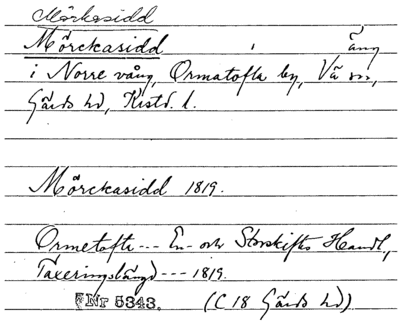 Mörkasidd
Mörckasidd i Äng
i Norre vång, Ormatofta by, Vä sn,
Gärds hd, Kristd. l.
Mörckasidd 1819.
Ormetofta --- En- och Storskifts Handl,
Taxeringslängd --- 1819.
Nr 5343. (C 18 Gärds hd)